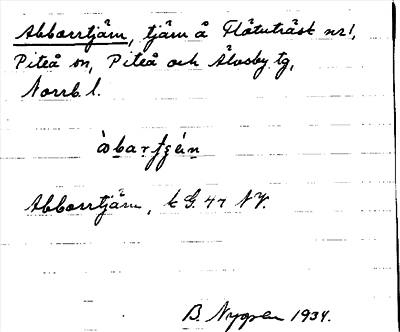 Abborrtjärn, tjärn å Flötuträsk nr 1,
Piteå sn, Piteå och Älvsby tg,
Norrb. l.
àbar̩ʃɕén
Abborrtjärn, k G. 47 NV.
B. Nygren 1934.